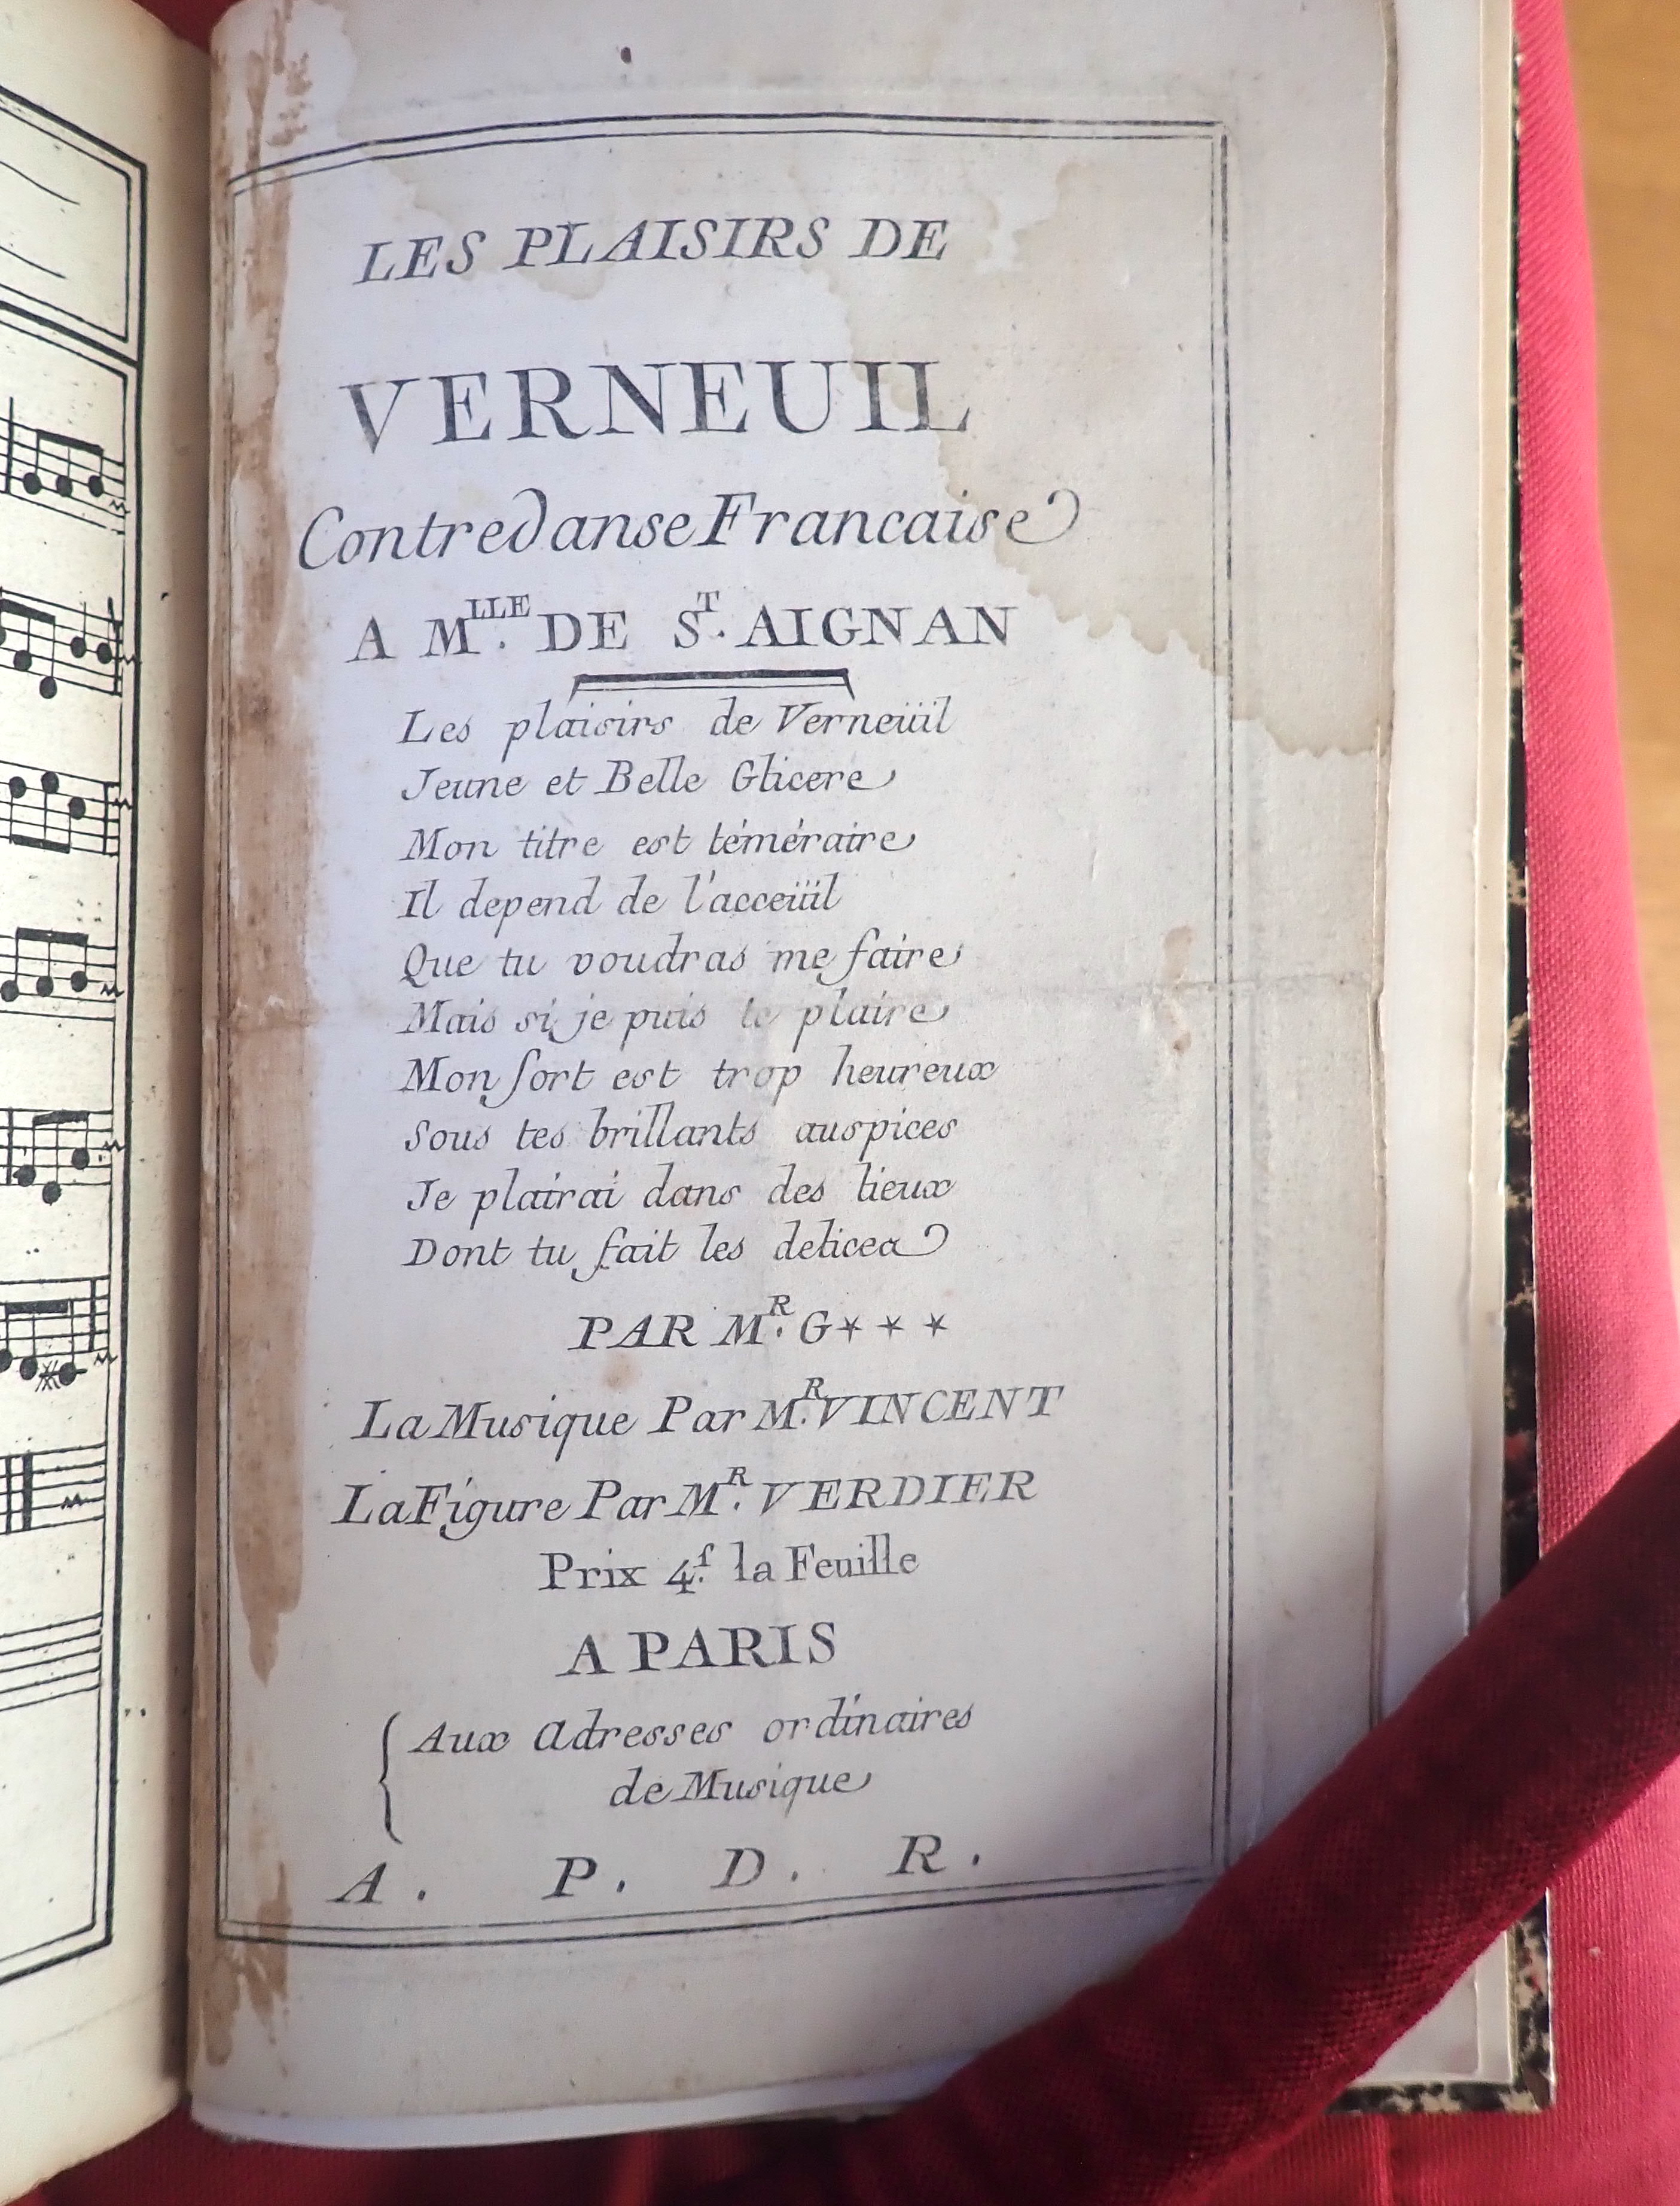 LES PLAISIRS DE
VERNEUIL
Contredanse Francaise
A M.LLE DE S.T AIGNAN
Les plaisirs de Verneüil
Jeune et Belle Glicere
Mon titre est téméraire
Il depend de l'acceüil
Que tu voudras me faire
Mais si je puis te plaire
Mon sort est trop heureux
Sous tes brillants auspices
Je plairai dans des lieux
Dont tu fait les delices
PAR M.R G***
La Musique Par M.R VINCENT
La Figure Par M.R VERDIER
Prix 4.f la Feuille
A PARIS
Aux Adresses ordinaires
de Musique
A. P. D. R.